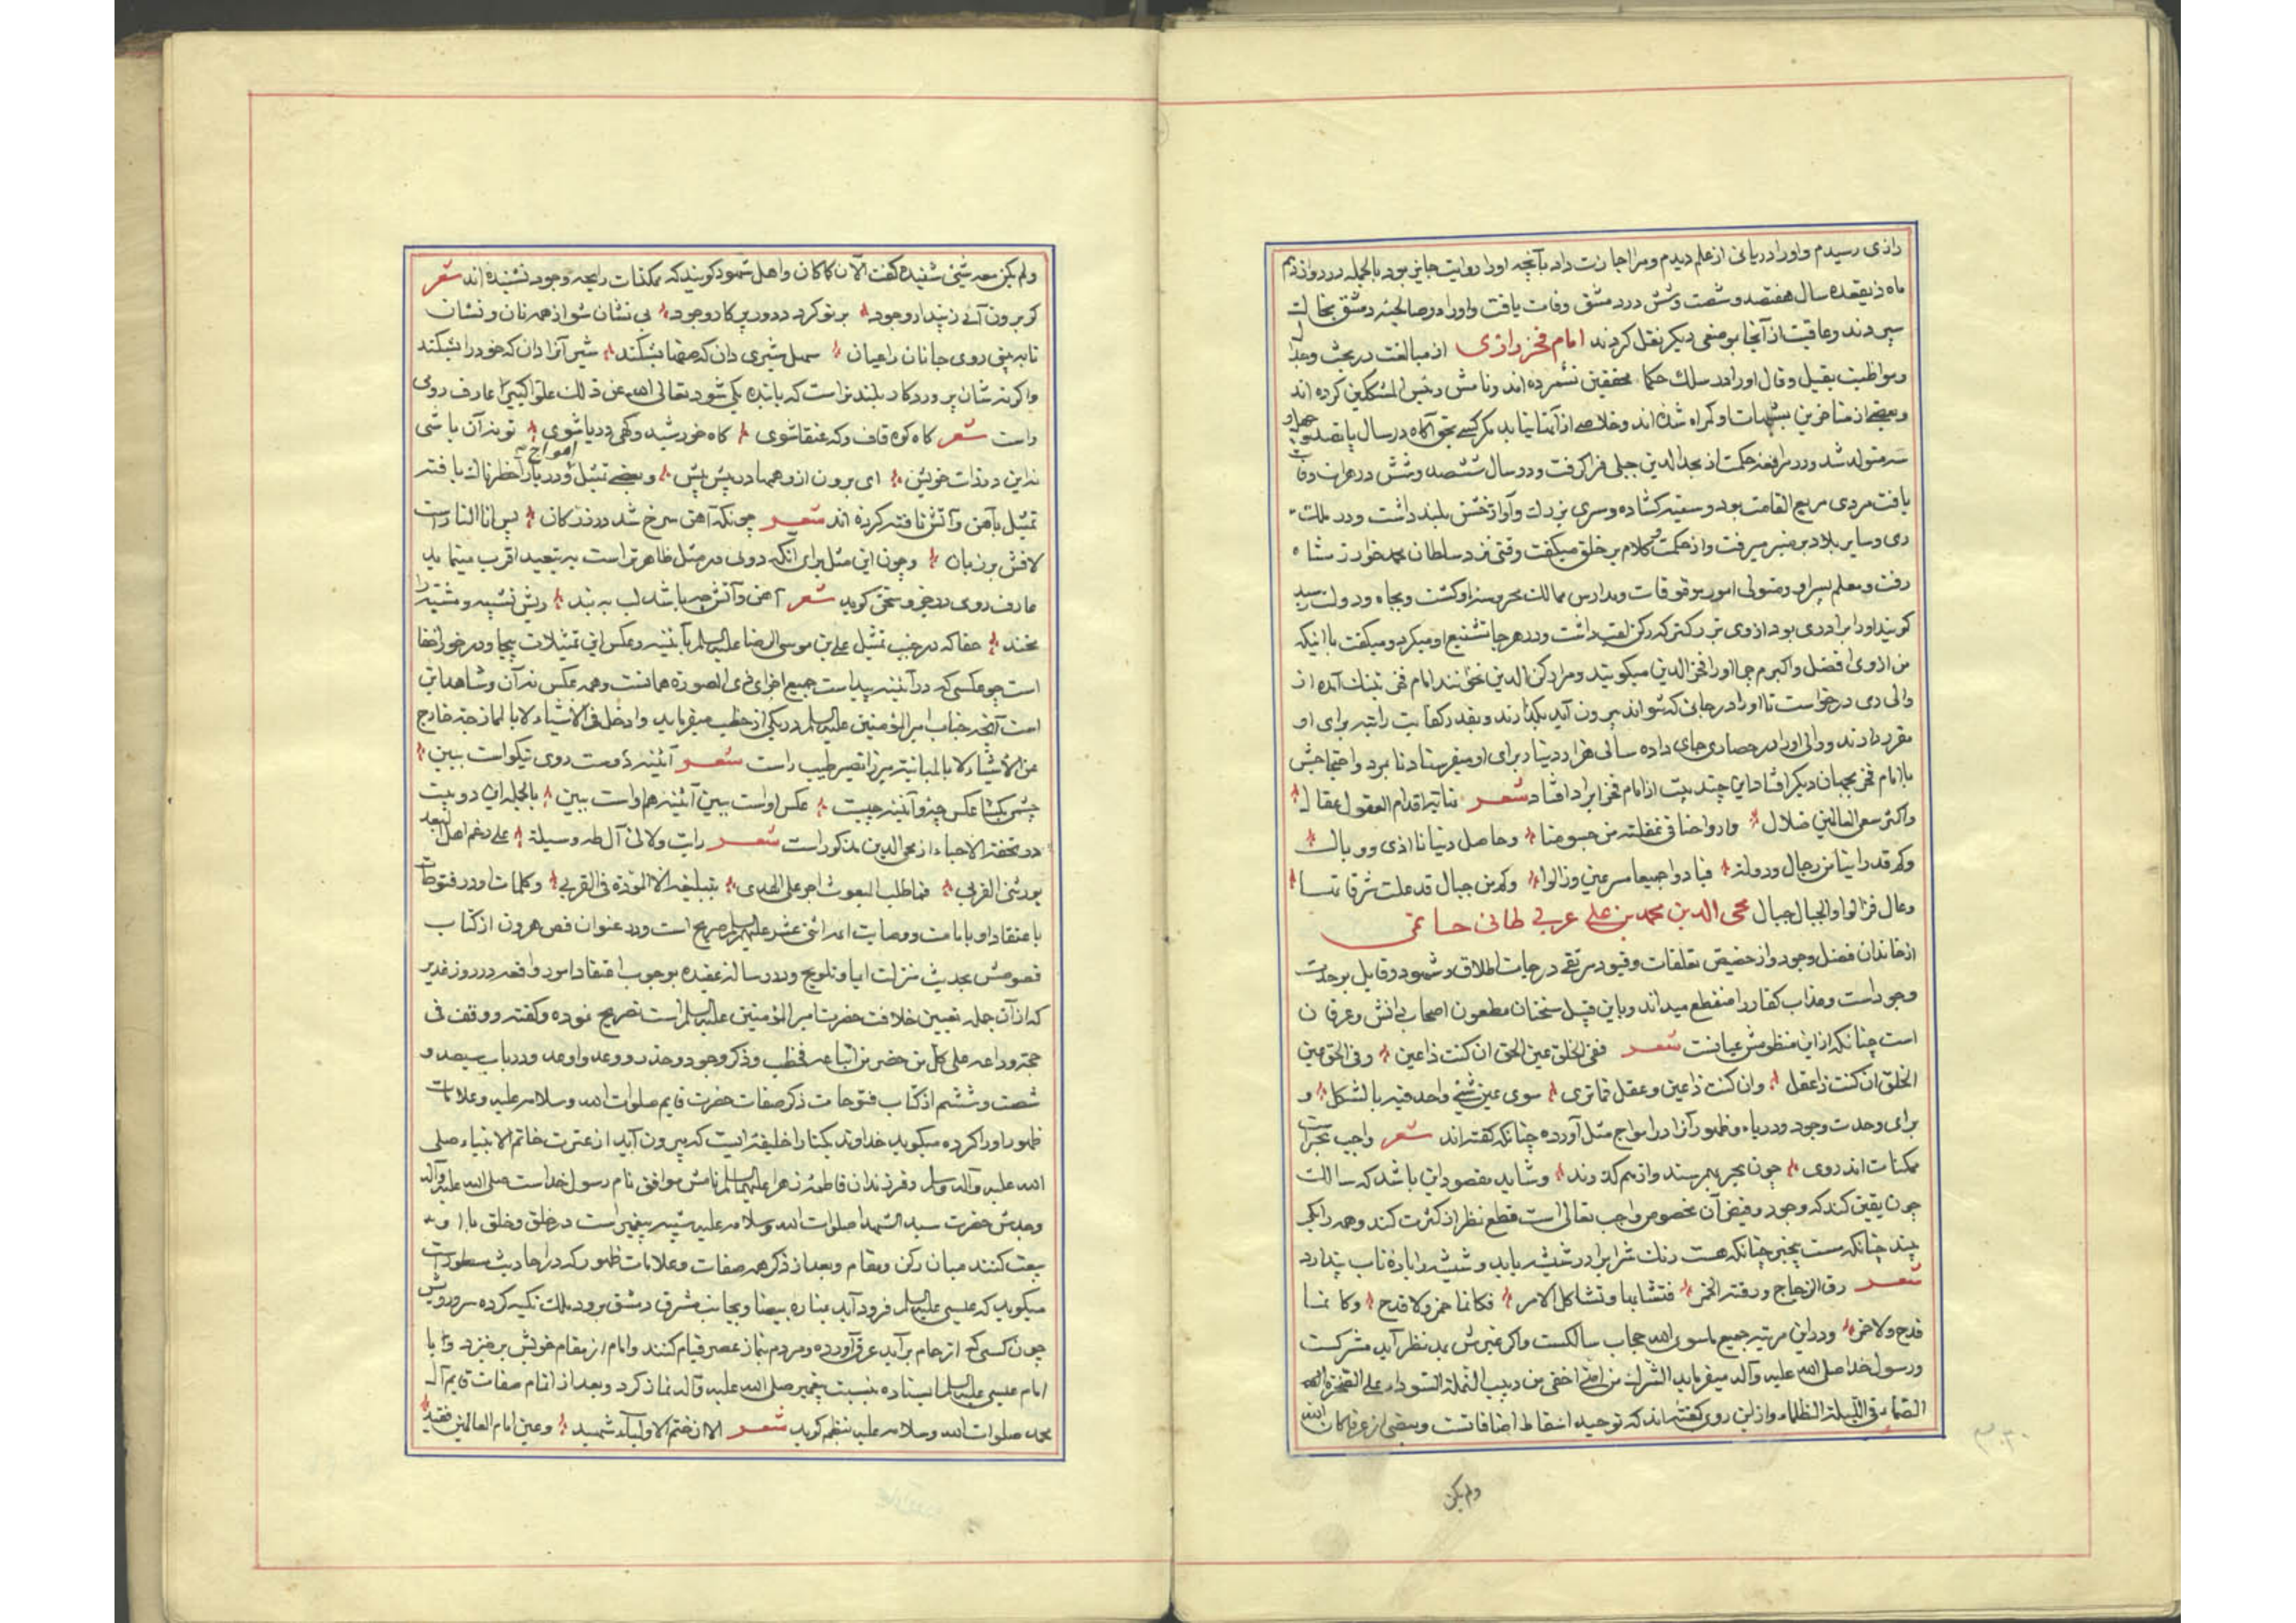 رازی رسیدم و او را دریائی از علم دیدم و مرا اجازت داد بآنچه او را روایت جایز بود بالجمله در روز دوازدهم
ماه ذیقعده سال هفتصد و شصت و شش در دمشق وفات یافت و او را در صالحیه دمشق بخاک
سپردند و عاقبت از آنجا بموضعی دیگر نقل کردند امام فخر رازی از مبالغت در بحث و جدل
و مواظبت بقیل و قال او را در سلک حکما محققین نشمرده اند و نامش رئیس المشککین کرده اند
و بعضی از متاخرین بشبهات او گمراه شده اند و خلاصی از آنها نیابد مگر کسی بحق آگاه در سال پانصد و چهل و
سه متولد شد و در مراغه حکمت از مجد الدین جیلی فرا گرفت و در سال ششصد و شش در هرات وفات
یافت مردی مربع القامت بود و سینه گشاده و سری بزرک و آواز خشن بلند داشت و در ملک
ری و سایر بلاد بر منبر میرفت و از حکمت و کلام بر خلق میگفت وقتی نزد سلطان محمد خوارزمشاه
رفت و معلم پسر او و متولی امور موقوفات و مدارس ممالک محروسه او گشت و بجاه و دولت رسید
گویند او را برادری بود از وی بزرکتر که رکن لقب داشت و در هر جا تشنیع او میکرد و میگفت با اینکه
من از وی افضل و اکبرم چرا او را فخر الدین میگویند و مرا رکن الدین نمی خوانند امام فخر بتنک آمده از
والی ری درخواست تا او را در جائی که نتواند بیرون آید بگذارند و بقدر کفایت راتبه برای او
مقرر دارند و والی او را در حصاری جای داده سالی هزار دینار برای او میفرستاد تا بمرد و احتیاجش
با امام فخر بجهان دیگر افتاد این چند بیت از امام فخر ایراد افتاد شعر نهایة اقدام العقول عقال
و اکثر سعی العالمین ضلال و ارواحنا فی غفلة من جسومنا و حاصل دنیانا اذی و وبال
و کم قد راینا من رجال و دولة فبادوا جمیعا مسرعین و زالوا و کم من جبال قد علت شرفاتها
رجال فزالوا و الجبال جبال محی الدین محمد بن علی عربی طائی حاتمی
از خاندان فضل و جود و از حضیض تعلقات و قیود مرتقی درجات اطلاق و شهود و قایل بوحدت
وجود است و عذاب کفار را منقطع میداند و باین قبیل سخنان مطعون اصحاب دانش و عرفان
است چنانکه از این منظومش عیانست شعر ففی الخلق عین الحق ان کنت ذا عین و فی الحق عین
الخلق ان کنت ذا عقل و ان کنت ذا عین و عقل فما تری سوی عین شئی واحد فیه بالشکل و
برای وحدت وجود دریا و ظهور آنرا در امواج مثل آورده چنانکه گفته اند شعر واجب بحریست
ممکنات اند روی چون بحر بهم رسند و از هم گذرند و شاید مقصود این باشد که سالک
چون یقین کند که وجود و فیض آن مخصوص واجب تعالی است قطع نظر از کثرت کند و همه را یکی
بیند چنانکه مست بیخبر چنانکه هست رنک شراب را در شیشه یابد و شیشه را باده ناب پندارد
شعر رق الزجاج و رقت الخمر فتشابها و تشاکل الامر فکانما خمر و لا قدح و کانما
قدح و لا خمر و در این مرتبه جمیع ماسوی الله حجاب سالکست و اگر غیرش بنظر آید مشرکست
و رسول خدا صلی الله علیه و آله میفرماید الشرک من امتی اخفی من دبیب النملة السوداء علی الصخرة
الصماء فی اللیلة الظلماء و از این روی گفته اند که توحید اسقاط اضافاتست و بعضی از عرفا کان الله
ولم یکن
ولم یکن معه شئی شنیده گفت الآن کما کان و اهل شهود گویند که ممکنات رایحه وجود نشنیده اند شعر
گر برون آئی ز پندار وجود بر تو گردد دور پرگار وجود بی نشان شو از همه نان و نشان
تا به بینی روی جانان را عیان سهل شیری دان که صفها بشکند شیر آنرا دان که خود را بشکند
و اگر نه شان پروردگار بلندتر است که با بنده یکی شود تعالی الله عن ذلک علوا کبیرا عارف رومی
راست شعر گاه کوه قاف و گه عنقا شوی گاه خورشید و گهی دریا شوی تو نه آن باشی
نه این در ذات خویش ای برون از وهمها در پیش پیش و بعضی تمثیل دریا و امواج را خطرناک یافته
تمثیل بآهن و آتش تافته کرده اند شعر چونکه آهن سرخ شد در زر کان پس انا النار است
لافش بر زبان و چون این مثل برای آنکه دوئی در مثل ظاهر تر است به تبعید اقرب مینماید
عارف رومی در دفتر سخن گوید شعر آهن و آتش چه باشد لب به بند ریش تشبیه و مشبه را
بخند حقا که در جنب تمثیل علی بن موسی الرضا علیه السلم بآئینه و عکس این تمثیلات بیجا و در خور اخفا
است چو عکسی که در آئینه پیداست جمیع اجزای ذی الصورة همانست و همه عکس نه آن و شاهد این
است آنچه جناب امیر المؤمنین علیه السلم در یکی از خطب میفرماید داخل فی الاشیاء لا بالممازجة خارج
عن الاشیاء لا بالمباینة میرزا نصیر طبیب راست شعر آئینه دوست روی نیکو است ببین
چشمی بگشا عکس چه و آئینه چیست عکس او است ببین آئینه هم او است ببین بالجمله این دو بیت
در تحفة الاحباء از محی الدین مذکور است شعر رایت ولائی آل طه وسیلة علی رغم اهل البعد
یورثنی القربی فما طلب المبعوث اجرا علی الهدی بتبلیغه الا المودة فی القربی و کلمات او در فتوحات
باعتقاد او بامامت و وصایت ائمه اثنی عشر علیهم السلم صریح است و در عنوان فص هرون از کتاب
فصوصش بحدیث منزلت ایما و تلویح و در رسالة عقیده بوجوب اعتقاد امور واقعه در روز غدیر
که از آن جمله تعیین خلافت حضرت امیر المؤمنین علیه السلم است تصریح نموده و گفته و وقف فی
حجة وداعه علی کل من حضر من اتباعه فخطب و ذکر و خوف و حذر و وعد و اوعد و در باب سیصد و
شصت و ششم از کتاب فتوحات ذکر صفات حضرت قایم صلوات الله و سلامه علیه و علامات
ظهور او را کرده میگوید خداوند یکتا را خلیفه ایست که بیرون آید از عترت خاتم الانبیاء صلی
الله علیه و آله و سلم و فرزندان فاطمه زهرا علیها السلم نامش موافق نام رسول خداست صلی الله علیه و آله
و جدش حضرت سید الشهدا صلوات الله و سلامه علیه شبیه پیغمبر است در خلق و خلق با او
بیعت کنند میان رکن و مقام و بعد از ذکر همه صفات و علامات ظهور که در احادیث مسطور است
میگوید که عیسی علیه السلم فرود آید بمناره بیضا و بجانب مشرق دمشق بر دو ملک تکیه کرده سر و رویش
چون کسی که از حمام بر آید عرق آورده و مردم بنماز عصر قیام کنند و امام از مقام خویش بر خیزد و با
امام عیسی علیه السلم ایستاده بسنت پیغمبر صلی الله علیه و آله نماز کرد و بعد از اتمام صفات قایم آل
محمد صلوات الله و سلامه علیه بنظم گوید شعر الا ان ختم الاولیاء شهید و عین امام العالمین فقید